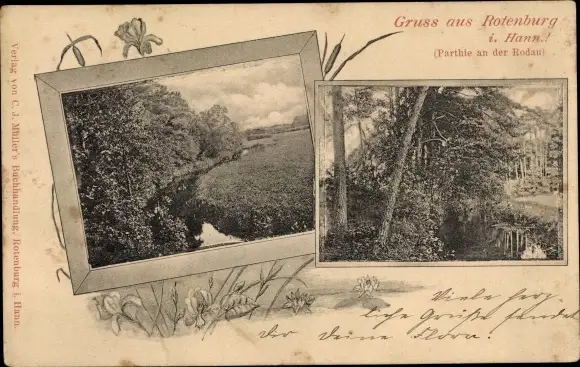 Gruss aus Rotenburg
i. Hann.!
(Parthie an der Rodau)
Verlag von C. J. Müller's Buchhandlung, Rotenburg i. Hann.
Viele herz-
liche Grüße sendet
der deine